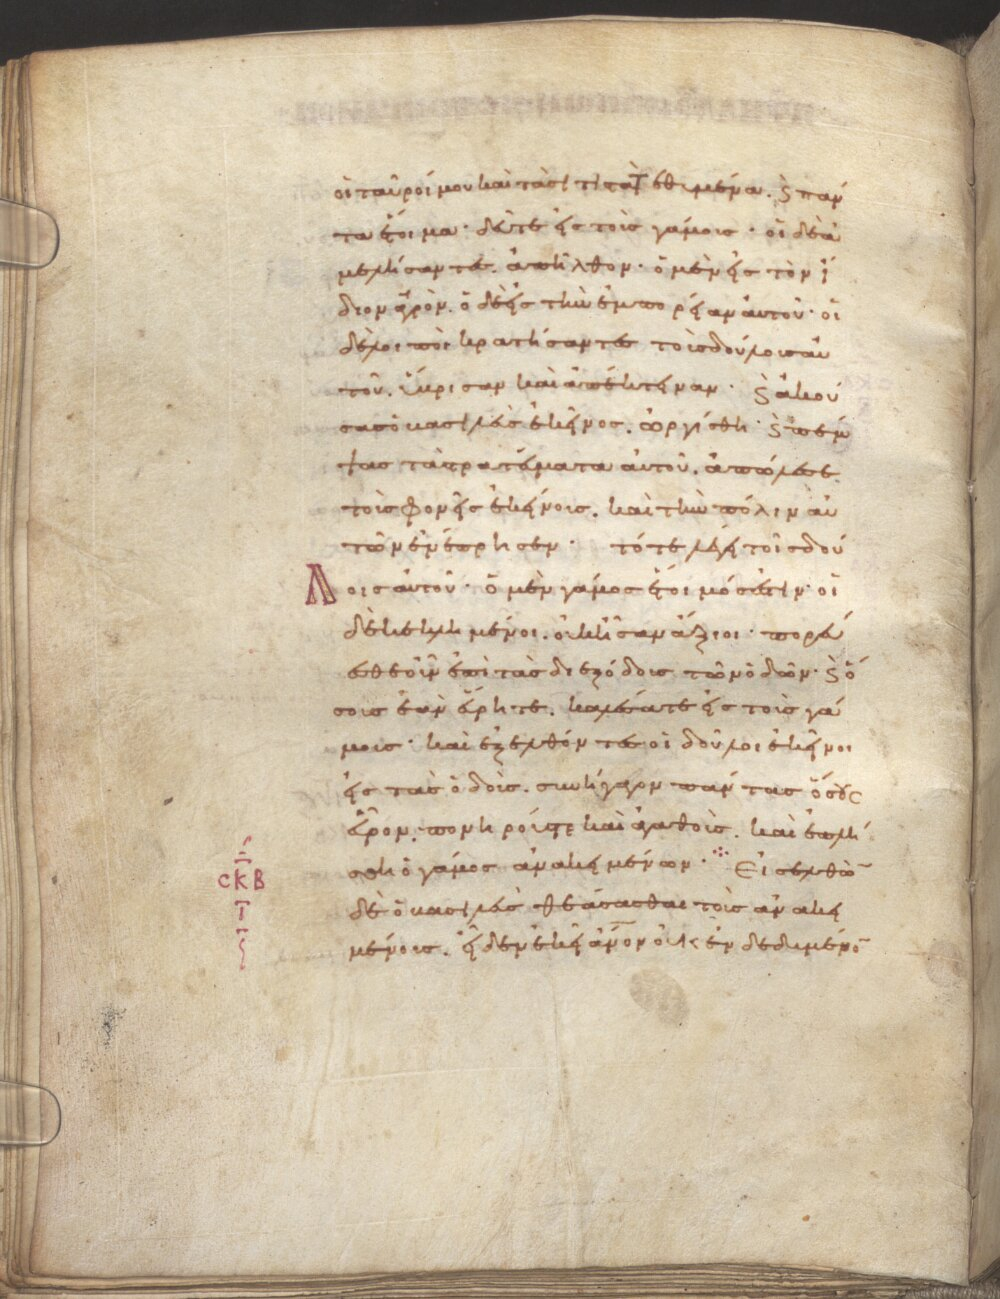 οἱ ταῦροί μου καὶ τὰ σιτιστὰ τεθυμένα. ϗ πάν
τα ἕτοιμα· δεῦτε εἰς τοὺς γάμους· οἱ δὲ ἀ
μελήσαντες. ἀπῆλθον· ὁ μὲν εἰς τὸν ἴ
διον ἀγρὸν. ὁ δὲ εἰς τὴν ἐμπορείαν αὐτοῦ· οἱ
δὲ λοιποὶ κρατήσαντες τοὺς δούλους αὐ
τοῦ. ὕβρισαν καὶ ἀπέκτειναν· ϗ ἀκού
σας ὁ βασιλεὺς ἐκεῖνος. ὠργίσθη· ϗ πέμ
ψας τὰ στρατεύματα αὐτοῦ. ἀπώλεσε
τοὺς φονεῖς ἐκείνους. καὶ τὴν πόλιν αὐ
τῶν ἐνέπρησεν· τότε λέγει τοῖς δού
λοις αὐτοῦ· ὁ μὲν γάμος ἕτοιμός ἐστιν· οἱ
δὲ κεκλημένοι. οὐκ ἦσαν ἄξιοι· πορεύ
εσθε οὖν ἐπὶ τὰς διεξόδους τῶν ὁδῶν· ϗ ὅ
σους ἐὰν εὕρητε. καλέσατε εἰς τοὺς γά
μους· καὶ ἐξελθόντες οἱ δοῦλοι ἐκεῖνοι
εἰς τὰς ὁδοὺς. συνήγαγον πάντας ὅσους
εὗρον. πονηρούς τε καὶ ἀγαθούς. καὶ ἐπλή
σθη ὁ γάμος ἀνακειμένων· Εἰσελθὼ̅
δὲ ὁ βασιλεὺς θεάσασθαι τοὺς ἀνακει
μένους. εἶδεν ἐκεῖ ἀν̅ον οὐκ ἐνδεδυμένο̅
ϲκβ